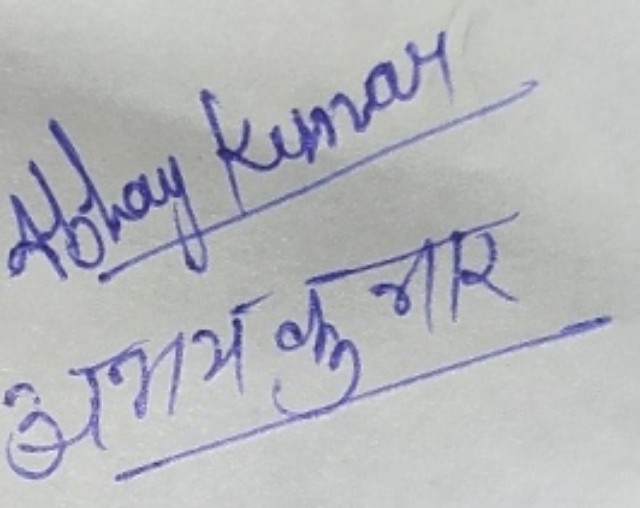 Abhay Kumar
अभय कुमार